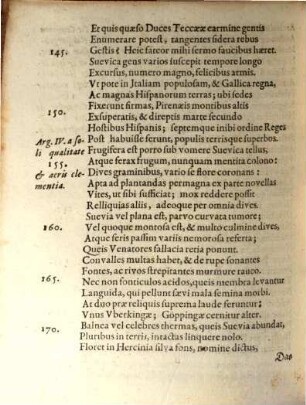 Et quis quæso Duces Teccææ earmine gentis
Enumerare potest, tangentes sidera rebus
145. Gestis? Heic fateor mihi sermo faucibus hæret.
Suevica gens varios suscepit tempore longo
Excursus, numero magno, felicibus armis.
Vt pote in Italiam populosam, & Gallica regna,
Ac magnas Hispanorum terras; ubi sedes
150. Fixerunt firmas, Pirenæis montibus altis
Exsuperatis, & direptis marte secundo
Hostibus Hispanis; septemque inibi ordine Reges
Arg. IV. a so- Post habuisse ferunt, populi terrisque superbos.
li qualitate Frugifera est porro sub vomere Suevica tellus,
155. Atque ferax frugum, nunquam mentita colono:
& aeris cle- Dives graminibus, vario se flore coronans:
mentia. Apta ad plantandas permagna ex parte novellas
Vites, ut sibi sufficiat; mox reddere possit
Relliquias aliis, adeoque per omnia dives.
Suevia vel plana est, parvo curvata tumore;
160. Vel quoque montosa est, & multo culmine dives,
Atque feris passim variis nemorosa referta;
Queis Venatores fallacia retia ponunt.
Convalles multas haber, & de rupe sonantes
Fontes, ac rivos strepitantes murmure rauco.
165. Nec non fonticulos acidos, queis membra levantur
Languida, qui pellunt sævi mala semina morbi.
At duo præ reliquis suprema laude feruntur:
Vnus Vberkingæ; Göppingæ cernitur alter.
Balnea vel celebres thermas, queis Suevia abundat,
170. Pluribus in terris, intactas linquere nolo.
Floret in Hercinia silva fons, nomine dictus,
Dao